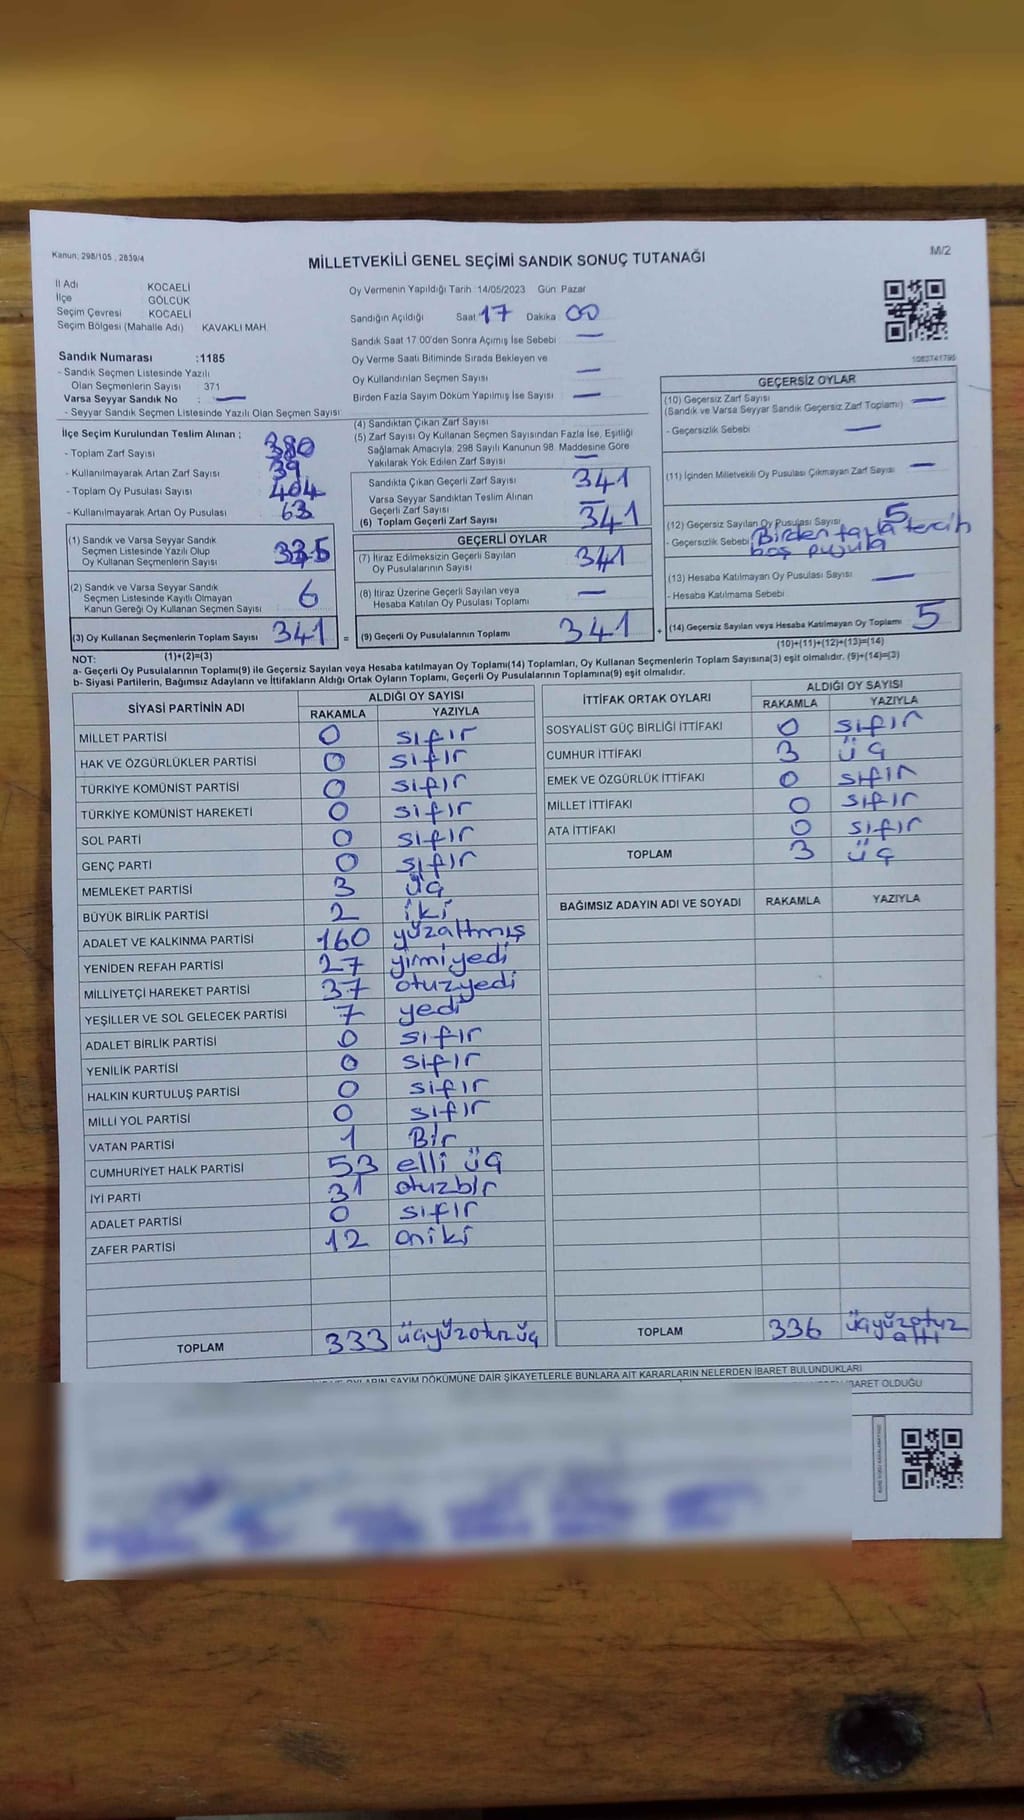 Kanun; 298/105 , 2839/4
MİLLETVEKİLİ GENEL SEÇİMİ SANDIK SONUÇ TUTANAĞI
M/2
İl Adı : KOCAELİ
İlçe : GÖLCÜK
Seçim Çevresi : KOCAELİ
Seçim Bölgesi (Mahalle Adı) KAVAKLI MAH.
Oy Vermenin Yapıldığı Tarih :14/05/2023 Gün: Pazar
Sandığın Açıldığı Saat 17 Dakika 00
Sandık Saat 17.00'den Sonra Açımış İse Sebebi : —
Oy Verme Saati Bitiminde Sırada Bekleyen ve
Oy Kullandırılan Seçmen Sayısı —
Birden Fazla Sayım Döküm Yapılmış İse Sayısı : —
1083741795
Sandık Numarası :1185
- Sandık Seçmen Listesinde Yazılı
Olan Seçmenlerin Sayısı : 371
Varsa Seyyar Sandık No : —
- Seyyar Sandık Seçmen Listesinde Yazılı Olan Seçmen Sayısı:
İlçe Seçim Kurulundan Teslim Alınan ;
- Toplam Zarf Sayısı : 380
- Kullanılmayarak Artan Zarf Sayısı : 39
- Toplam Oy Pusulası Sayısı : 404
- Kullanılmayarak Artan Oy Pusulası : 63
(1) Sandık ve Varsa Seyyar Sandık
Seçmen Listesinde Yazılı Olup
Oy Kullanan Seçmenlerin Sayısı 335
(2) Sandık ve Varsa Seyyar Sandık
Seçmen Listesinde Kayıtlı Olmayan
Kanun Gereği Oy Kullanan Seçmen Sayısı 6
(3) Oy Kullanan Seçmenlerin Toplam Sayısı 341 =
(1)+(2)=(3)
(4) Sandıktan Çıkan Zarf Sayısı :
(5) Zarf Sayısı Oy Kullanan Seçmen Sayısından Fazla İse, Eşitliği
Sağlamak Amacıyla, 298 Sayılı Kanunun 98. Maddesine Göre
Yakılarak Yok Edilen Zarf Sayısı : —
Sandıkta Çıkan Geçerli Zarf Sayısı : 341
Varsa Seyyar Sandıktan Teslim Alınan
Geçerli Zarf Sayısı : —
(6) Toplam Geçerli Zarf Sayısı : 341
GEÇERLİ OYLAR
(7) İtiraz Edilmeksizin Geçerli Sayılan
Oy Pusulalarının Sayısı : 341
(8) İtiraz Üzerine Geçerli Sayılan veya
Hesaba Katılan Oy Pusulası Toplamı : —
(9) Geçerli Oy Pusulalarının Toplamı : 341 +
GEÇERSİZ OYLAR
(10) Geçersiz Zarf Sayısı : —
(Sandık ve Varsa Seyyar Sandık Geçersiz Zarf Toplamı)
- Geçersizlik Sebebi : —
(11) İçinden Milletvekili Oy Pusulası Çıkmayan Zarf Sayısı : —
(12) Geçersiz Sayılan Oy Pusulası Sayısı : 5
- Geçersizlik Sebebi : Birden fazla tercih
boş pusula
(13) Hesaba Katılmayan Oy Pusulası Sayısı : —
- Hesaba Katılmama Sebebi :
(14) Geçersiz Sayılan veya Hesaba Katılmayan Oy Toplamı : 5
(10)+(11)+(12)+(13)=(14)
NOT:
a- Geçerli Oy Pusulalarının Toplamı(9) ile Geçersiz Sayılan veya Hesaba katılmayan Oy Toplamı(14) Toplamları, Oy Kullanan Seçmenlerin Toplam Sayısına(3) eşit olmalıdır. (9)+(14)=(3)
b- Siyasi Partilerin, Bağımsız Adayların ve İttifakların Aldığı Ortak Oyların Toplamı, Geçerli Oy Pusulalarının Toplamına(9) eşit olmalıdır.
SİYASİ PARTİNİN ADI ALDIĞI OY SAYISI
RAKAMLA YAZIYLA
MİLLET PARTİSİ 0 sıfır
HAK VE ÖZGÜRLÜKLER PARTİSİ 0 sıfır
TÜRKİYE KOMÜNİST PARTİSİ 0 sıfır
TÜRKİYE KOMÜNİST HAREKETİ 0 sıfır
SOL PARTİ 0 sıfır
GENÇ PARTİ 0 sıfır
MEMLEKET PARTİSİ 3 üç
BÜYÜK BİRLİK PARTİSİ 2 iki
ADALET VE KALKINMA PARTİSİ 160 yüzaltmış
YENİDEN REFAH PARTİSİ 27 yirmiyedi
MİLLİYETÇİ HAREKET PARTİSİ 37 otuzyedi
YEŞİLLER VE SOL GELECEK PARTİSİ 7 yedi
ADALET BİRLİK PARTİSİ 0 sıfır
YENİLİK PARTİSİ 0 sıfır
HALKIN KURTULUŞ PARTİSİ 0 sıfır
MİLLİ YOL PARTİSİ 0 sıfır
VATAN PARTİSİ 1 Bir
CUMHURİYET HALK PARTİSİ 53 elli üç
İYİ PARTİ 31 otuzbir
ADALET PARTİSİ 0 sıfır
ZAFER PARTİSİ 12 oniki
TOPLAM 333 üçyüzotuzüç
İTTİFAK ORTAK OYLARI ALDIĞI OY SAYISI
RAKAMLA YAZIYLA
SOSYALİST GÜÇ BİRLİĞİ İTTİFAKI 0 sıfır
CUMHUR İTTİFAKI 3 üç
EMEK VE ÖZGÜRLÜK İTTİFAKI 0 sıfır
MİLLET İTTİFAKI 0 sıfır
ATA İTTİFAKI 0 sıfır
TOPLAM 3 üç
BAĞIMSIZ ADAYIN ADI VE SOYADI RAKAMLA YAZIYLA
TOPLAM 336 üçyüzotuz
altı
OYLARIN SAYIM DÖKÜMÜNE DAİR ŞİKAYETLERLE BUNLARA AİT KARARLARIN NELERDEN İBARET BULUNDUKLARI
İBARET OLDUĞU